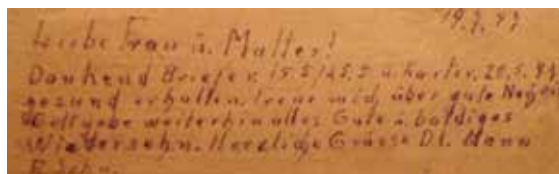 19.7.47
Liebe Frau u. Mutter!
Dankend Briefe v. 15.5/25.5 u. Karte v. 28.5.47
gesund erhalten. Freue mich über gute
Gott gebe weiterhin alles Gute u. baldiges
Wiedersehn. Herzliche Grüsse Dt. Mann